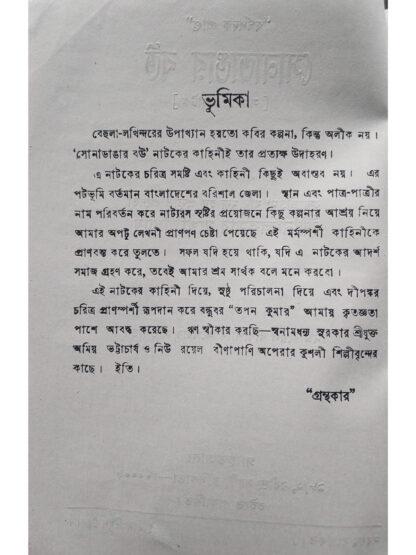 ভূমিকা
বেহুলা-লখিন্দরের উপাখ্যান হয়তো কবির কল্পনা, কিন্তু অলীক নয়।
'সোনাডাঙার বউ' নাটকের কাহিনীই তার প্রত্যক্ষ উদাহরণ।
এ নাটকের চরিত্র সমষ্টি এবং কাহিনী কিছুই অবান্তব নয়। এর
পটভূমি বর্তমান বাংলাদেশের বরিশাল জেলা। স্থান এবং পাত্র-পাত্রীর
নাম পরিবর্তন করে নাট্যরস সৃষ্টির প্রয়োজনে কিছু কল্পনার আশ্রয় নিয়ে
আমার অপটু লেখনী প্রাণপণ চেষ্টা পেয়েছে এই মর্মস্পর্শী কাহিনীকে
প্রাণবন্ত করে তুলতে। সফল যদি হয়ে থাকি, যদি এ নাটকের আদর্শ
সমাজ গ্রহণ করে, তবেই আমার শ্রম সার্থক বলে মনে করবো।
এই নাটকের কাহিনী দিয়ে, সুষ্ঠু পরিচালনা দিয়ে এবং দীপঙ্কর
চরিত্র প্রাণস্পর্শী রূপদান করে বন্ধুবর "তপন কুমার" আমায় কৃতজ্ঞতা
পাশে আবদ্ধ করেছে। ঋণ স্বীকার করছি—স্বনামধন্য সুরকার শ্রীযুক্ত
অমিয় ভট্টাচার্য ও নিউ রয়েল বীণাপাণি অপেরার কুশলী শিল্পীবৃন্দের
কাছে। ইতি।
"গ্রন্থকার"